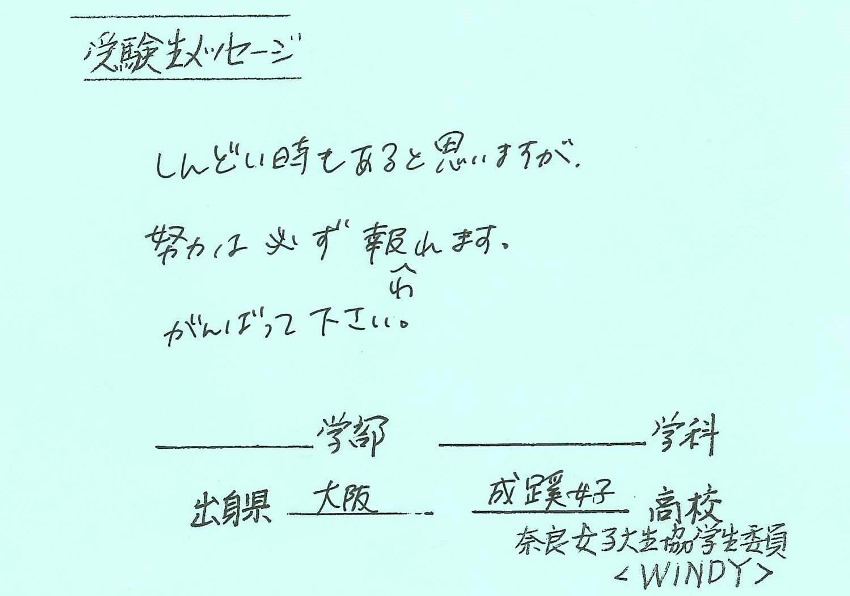 受験生メッセージ
しんどい時もあると思いますが、
努力は必ず報われます。
がんばって下さい。
学部 学科
出身県 大阪 成蹊女子 高校
奈良女子大生協学生委員
<WINDY>